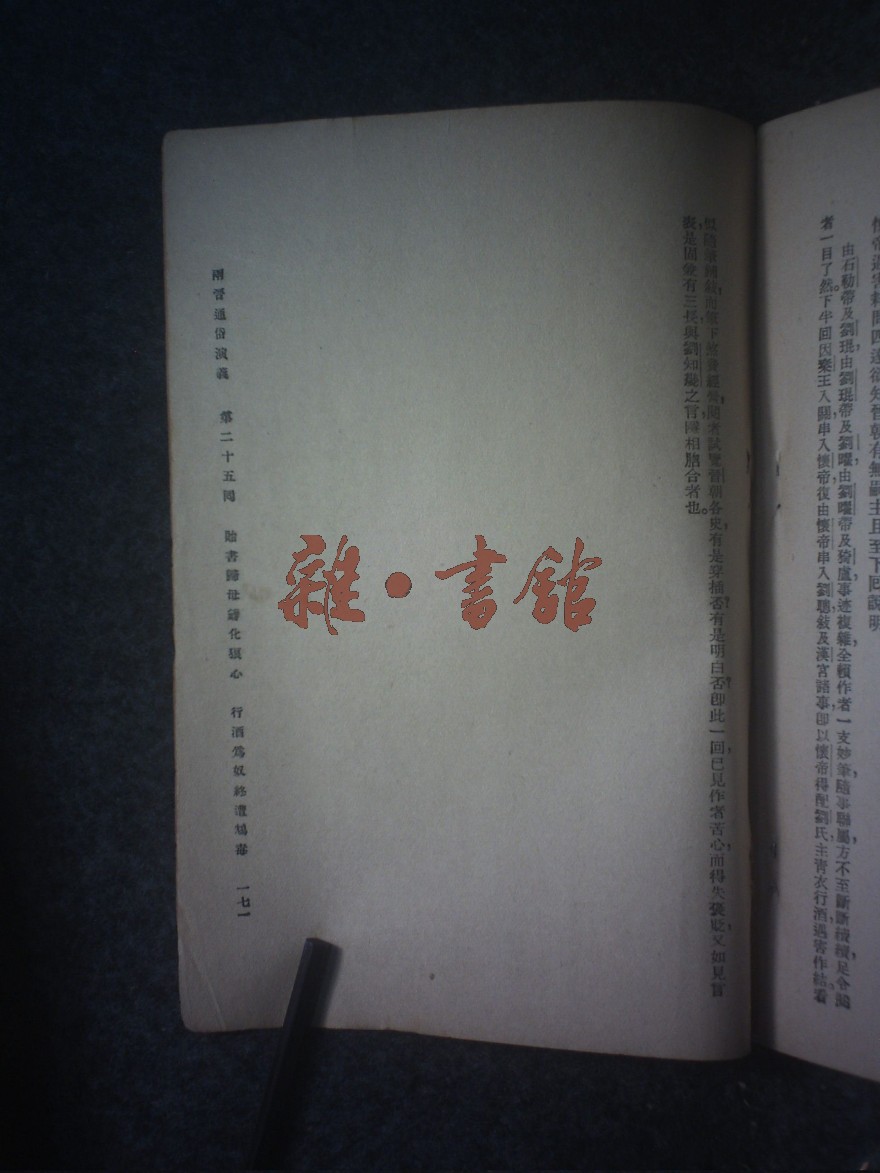 由石勒帶及劉琨，由劉琨帶及劉曜，由劉曜帶及猗盧，事迹複雜，全賴作者一支妙筆，隨事聯屬，方不至斷斷續續，足令閱
者一目了然。下半回因秦王入關，串入懷帝，復由懷帝串入劉聰，敍及漢宮諸事，即以懷帝得配劉氏主，青衣行酒，遇害作結。看
下煞費經營，閱者試覽晉朝各史，有是穿插否，有是明白否，即此一回，已見作者苦心，而得失褒貶，又如見言
表，是固兼有三長，與劉知幾之言，相脗合者也。
兩晉通俗演義 第二十五回 貽書歸母難化狼心 行酒爲奴終遭鴆毒 一七一
雜·書館